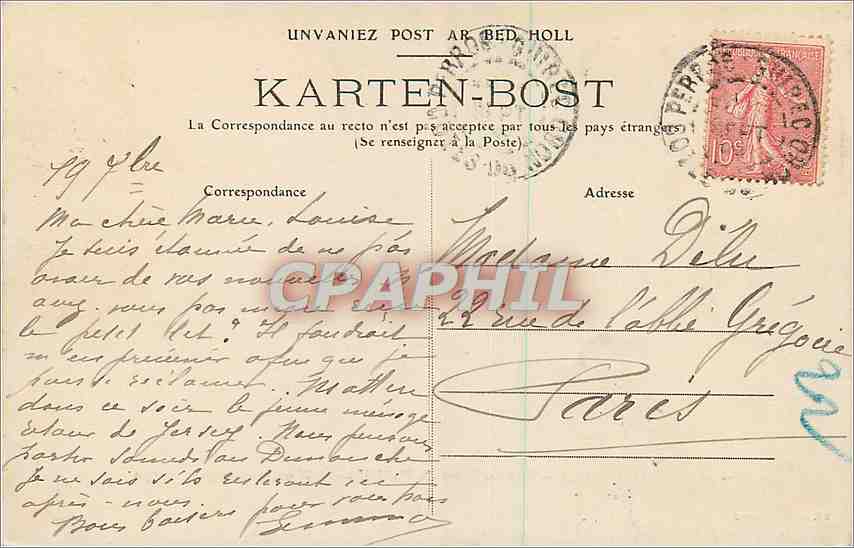 UNVANIEZ POST AR BED HOLL
KARTEN-BOST
La Correspondance au recto n'est pas acceptée par tous les pays étrangers
(Se renseigner à la Poste)
Correspondance
Adresse
19 7bre
Ma chère Marie, Louise
Je suis étonnée de ne pas
avoir de vos nouvelles. N'
avez-vous pas
le petit ? Il faudrait
m'en prévenir afin que je
puisse réclamer.
dans ce soir le jeune ménage
retour de Jersey. Nous pensons
partir samedi ou Dimanche
Je ne sais s'ils resteront ici
après-nous.
Bons baisers pour vous tous
Madame
22 rue de l'abbé Grégoire
Paris
22
10c
PERROS-GUIREC
PERROS-GUIREC
CPAPHIL